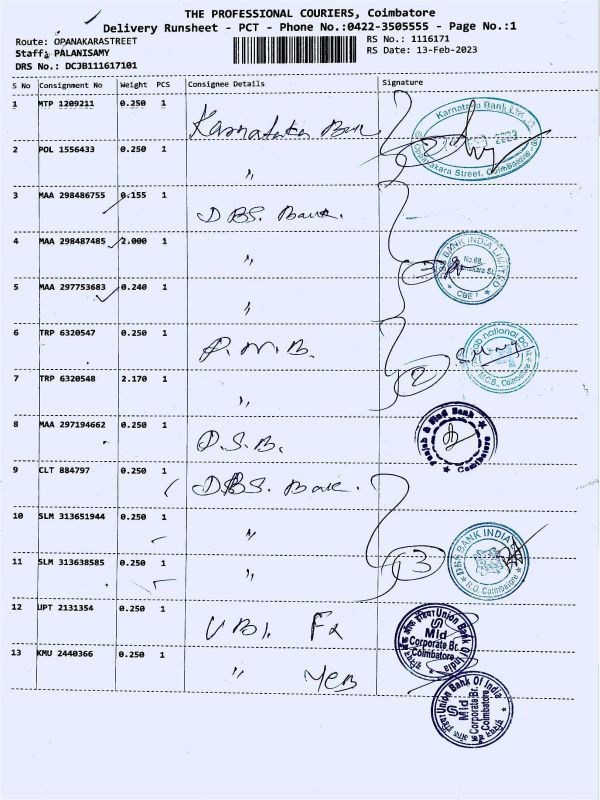 THE PROFESSIONAL COURIERS, Coimbatore
Delivery Runsheet - PCT - Phone No.:0422-3505555 - Page No.:1
Route: OPANAKARASTREET RS No.: 1116171
Staff: PALANISAMY RS Date: 13-Feb-2023
DRS No.: DCJB111617101
S No Consignment No Weight PCS Consignee Details Signature
1 MTP 1209211 0.250 1 Karnataka Ban
Karnataka Bank Ltd.
2023
Oppanakara Street, Coimbatore
2 POL 1556433 0.250 1 " 2
3 MAA 298486755 0.155 1 DBS. Bank.
4 MAA 298487485 2.000 1 " 3
DBS BANK INDIA LIMITED
No.68,
CBE 1
5 MAA 297753683 0.240 1 "
6 TRP 6320547 0.250 1 P.N.B.
punjab national bank
M.C.B., Coimbatore
7 TRP 6320548 2.170 1 " 2
8 MAA 297194662 0.250 1 P.S.B.
Punjab & Sind Bank
Coimbatore
9 CLT 884797 0.250 1 DBS. Bank.
10 SLM 313651944 0.250 1 "
11 SLM 313638585 0.250 1 " 3
DBS BANK INDIA LTD
R.O. Coimbatore
12 UPT 2131354 0.250 1 UBI. Fx
Union Bank Of India
Mid
Corporate Br.
Coimbatore
13 KMU 2440366 0.250 1 " MCB
Union Bank Of India
Mid
Corporate Br.
Coimbatore